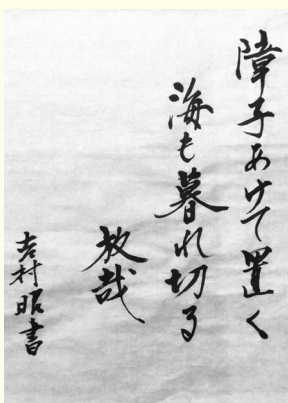 障子あけて置く
海も暮れ切る
放哉
吉村昭書